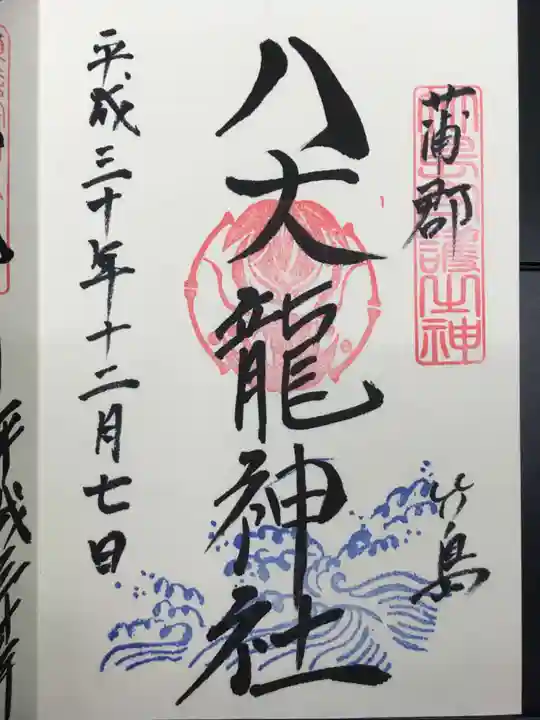 蒲郡
竹島
竹島守護之神
八大龍神社
平成三十年十二月七日